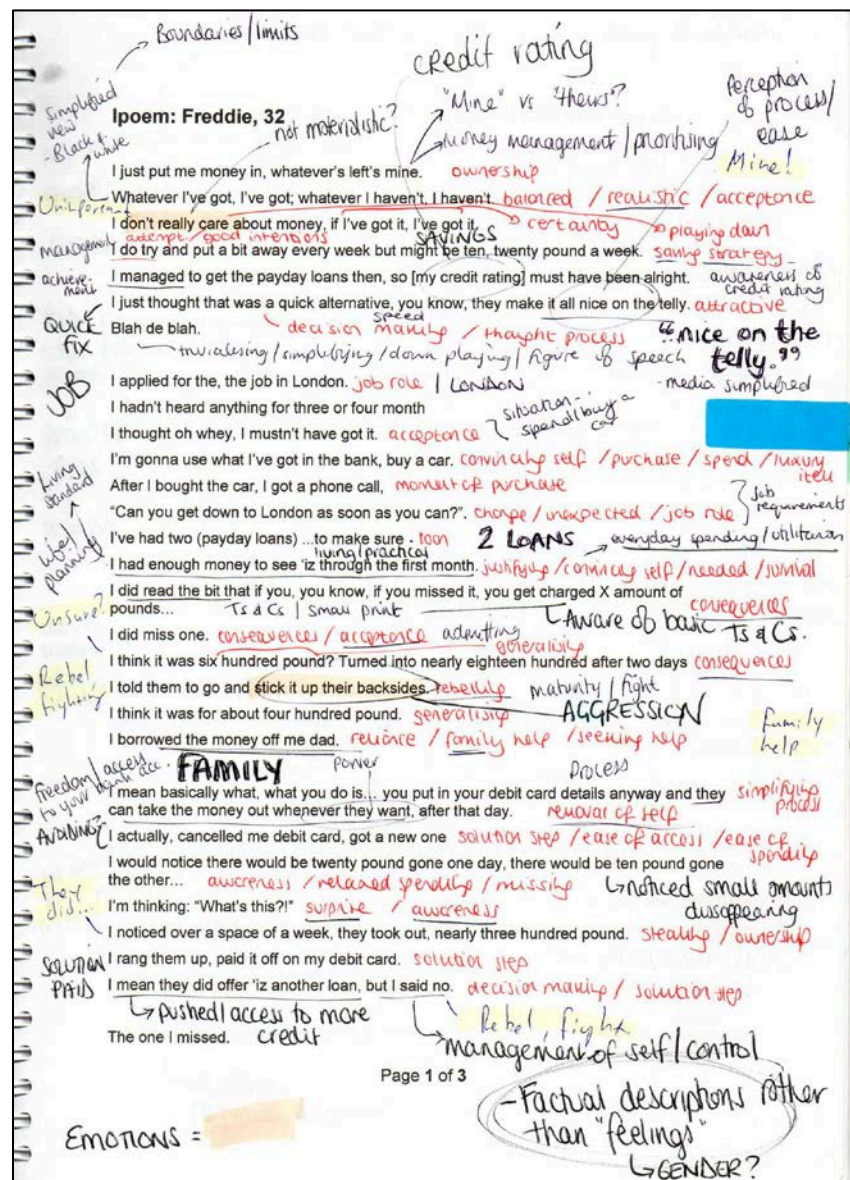 Boundaries/limits
credit rating
simplified
view
- Black &
white
Ipoem: Freddie, 32
not materialistic?
"Mine" vs "theirs"?
money management / prioritising
Perception
of process/
ease
Mine!
I just put me money in, whatever's left's mine. ownership
Whatever I've got, I've got; whatever I haven't, I haven't. balanced / realistic / acceptance
I don't really care about money, if I've got it, I've got it. certainty playing down
attempt / good intentions SAVINGS
management I do try and put a bit away every week but might be ten, twenty pound a week. saving strategy
achieve-
ment
I managed to get the payday loans then, so [my credit rating] must have been alright. awareness of
credit rating
I just thought that was a quick alternative, you know, they make it all nice on the telly. attractive
QUICK
FIX
Blah de blah. speed
decision making / thought process
"nice on the
telly."
trivialising / simplifying / down playing / figure of speech
- media simplified
JOB
I applied for the, the job in London. job role | LONDON
I hadn't heard anything for three or four month
situation -
spend/buy a
car
I thought oh whey, I mustn't have got it. acceptance
I'm gonna use what I've got in the bank, buy a car. convincing self / purchase / spend / luxury
item
Living
standard
After I bought the car, I got a phone call, moment of purchase
job
requirements
"Can you get down to London as soon as you can?". change / unexpected / job role
planning
I've had two (payday loans) ...to make sure - loan 2 LOANS everyday spending / utilitarian
living/practical
I had enough money to see 'iz through the first month. justifying / convincing self / needed / survival
Unsure?
I did read the bit that if you, you know, if you missed it, you get charged X amount of
pounds... Ts & Cs | small print consequences
Aware of basic Ts & Cs.
I did miss one. consequences / acceptance admitting
generalising
I think it was six hundred pound? Turned into nearly eighteen hundred after two days consequences
Rebel
fighting
I told them to go and stick it up their backsides. rebelling maturity / fight
AGGRESSION
I think it was for about four hundred pound. generalising
family
help
I borrowed the money off me dad. reliance / family help / seeking help
FAMILY power Process
Freedom/access
to your bank acc.
I mean basically what, what you do is... you put in your debit card details anyway and they simplifying
process
can take the money out whenever they want, after that day. removal of self
AVOIDING?
I actually, cancelled me debit card, got a new one solution step / ease of access / ease of
spending
I would notice there would be twenty pound gone one day, there would be ten pound gone
the other... awareness / relaxed spending / missing
noticed small amounts
dissappearing
They
did...
I'm thinking: "What's this?!" surprise / awareness
I noticed over a space of a week, they took out, nearly three hundred pound. stealing / ownership
SOLUTION
PAID
I rang them up, paid it off on my debit card. solution step
I mean they did offer 'iz another loan, but I said no. decision making / solution step
pushed/access to more
credit
Rebel, fight
The one I missed.
management of self/control
Page 1 of 3
- Factual descriptions rather
than "feelings"
GENDER?
EMOTIONS =